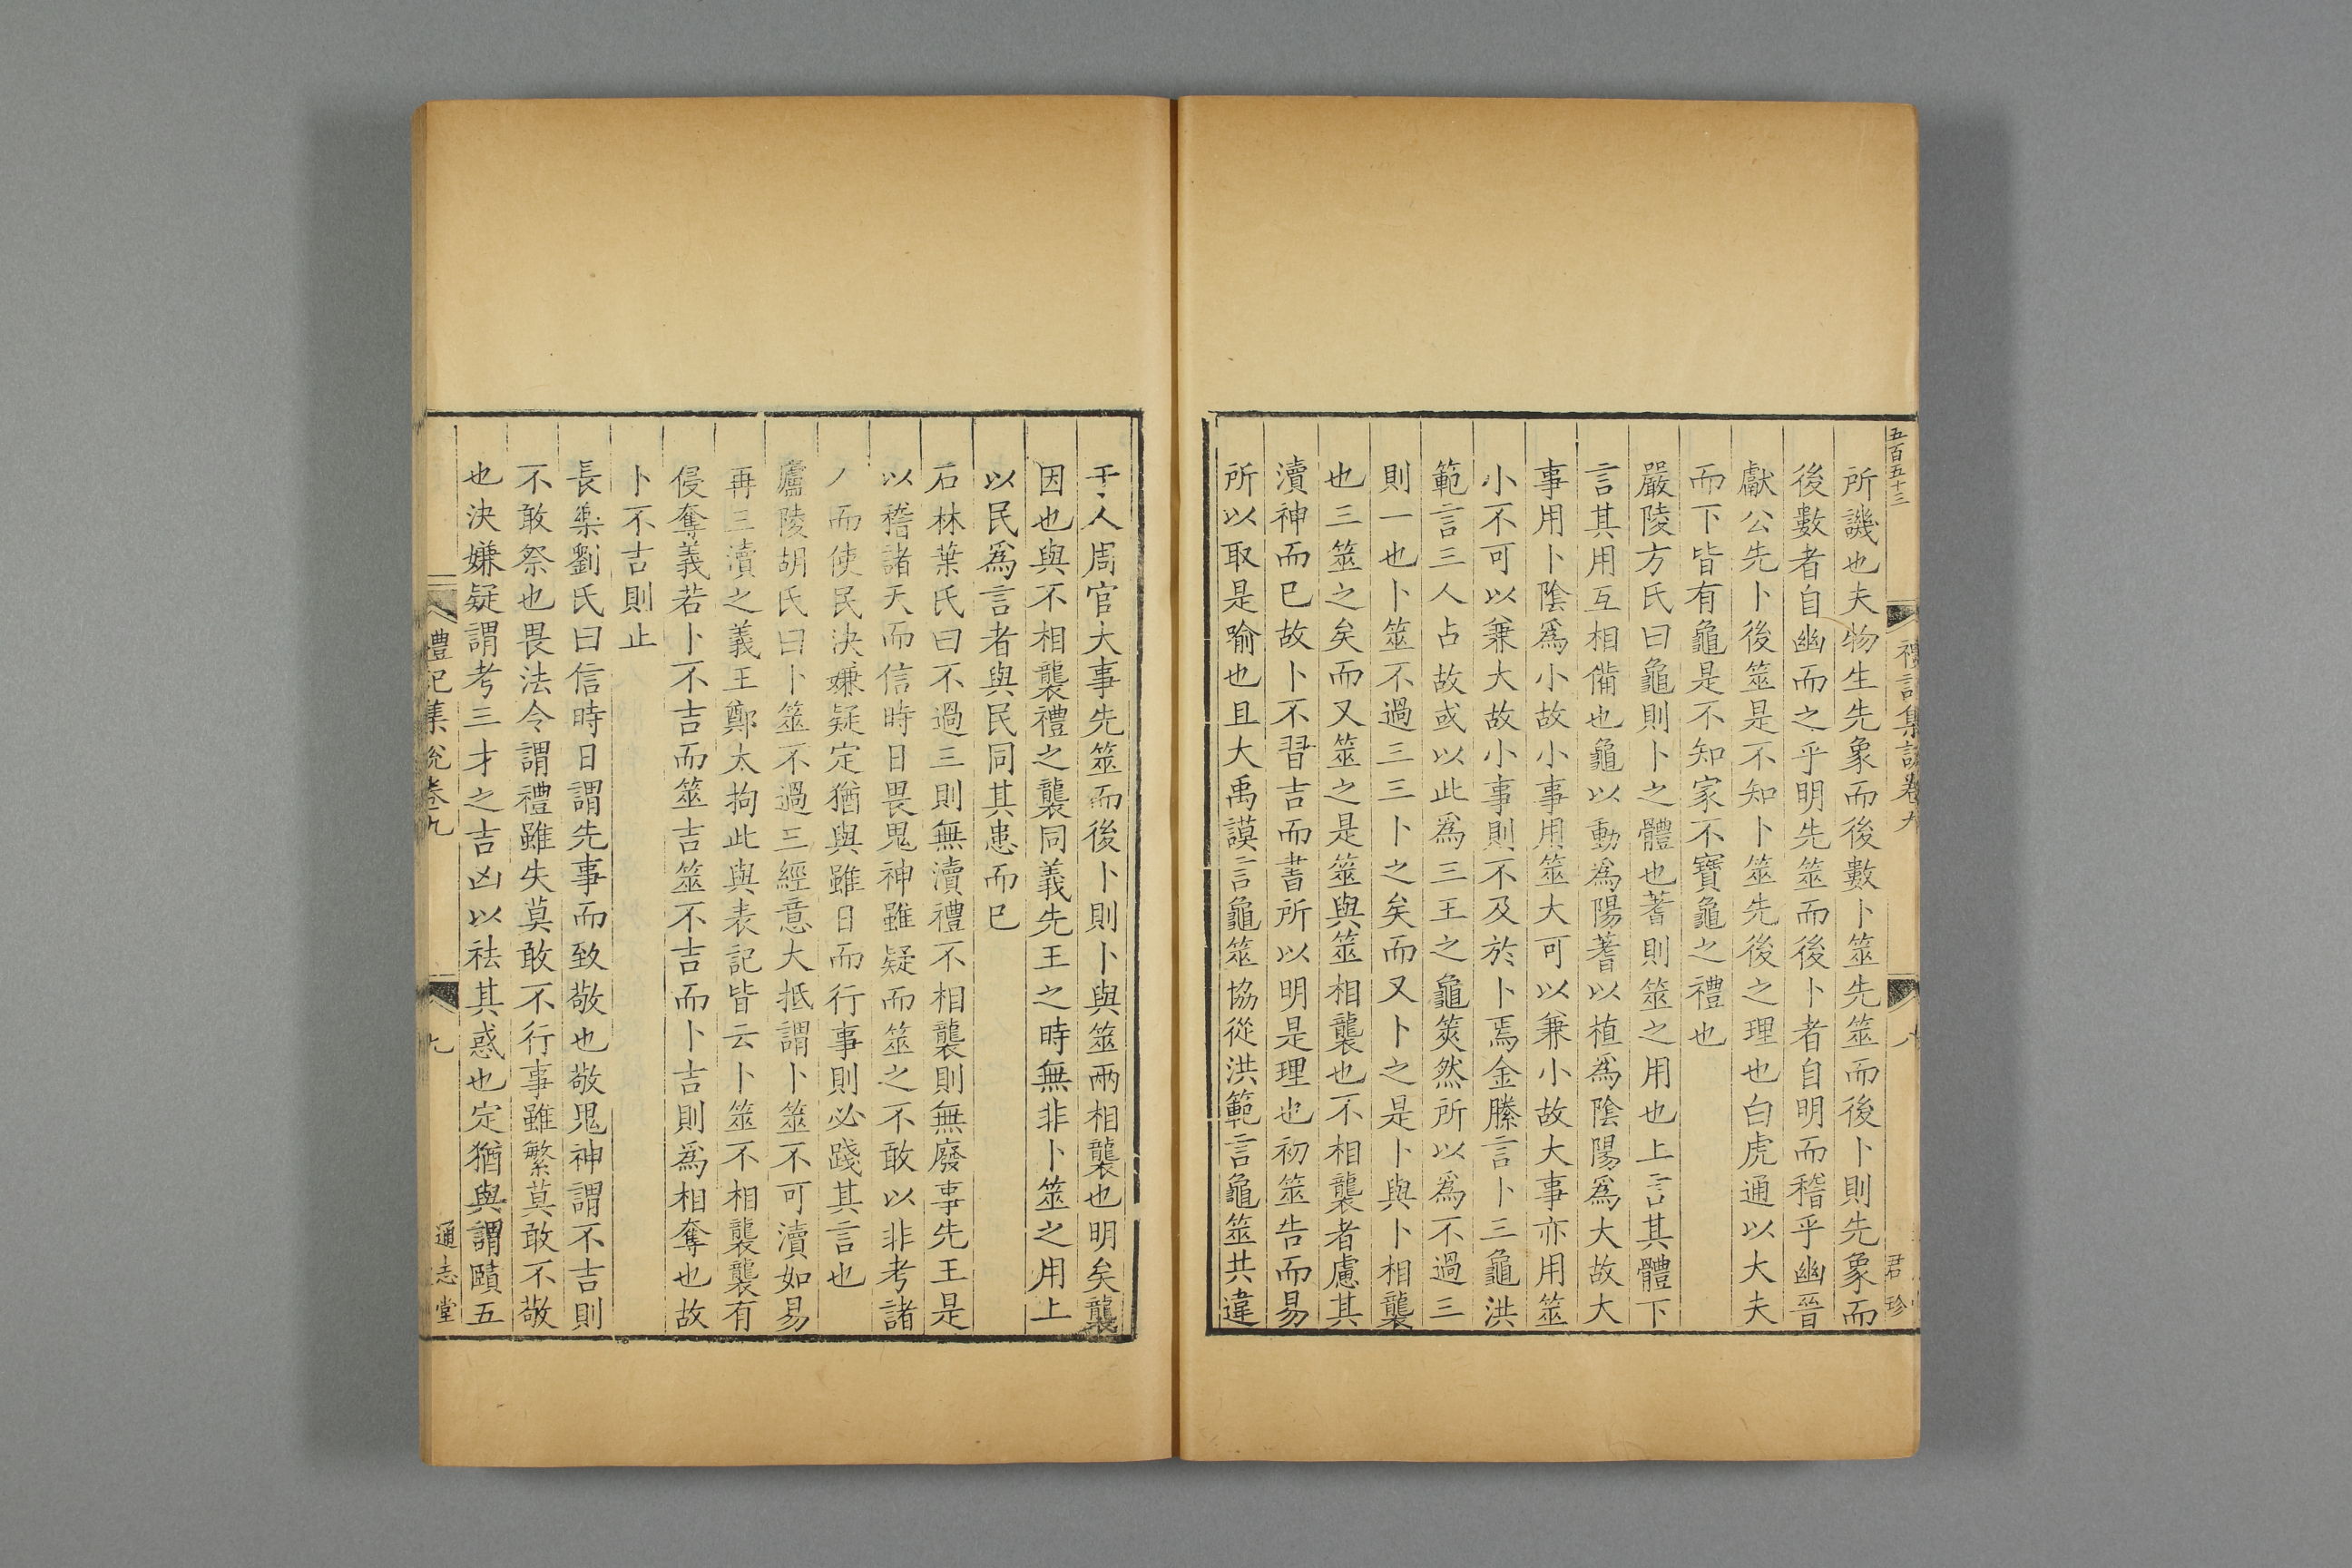 五百五十三
禮記集說卷九
君珍
所譏也夫物生先象而後數卜筮先筮而後卜則先象而
後數者自幽而之乎明先筮而後卜者自明而稽乎幽晉
獻公先卜後筮是不知卜筮先後之理也白虎通以大夫
而下皆有龜是不知家不寶龜之禮也
嚴陵方氏曰龜則卜之體也蓍則筮之用也上言其體下
言其用互相備也龜以動爲陽蓍以植爲陰陽爲大故大
事用卜陰爲小故小事用筮大可以兼小故大事亦用筮
小不可以兼大故小事則不及於卜焉金縢言卜三龜洪
範言三人占故或以此爲三王之龜筴然所以爲不過三
則一也卜筮不過三三卜之矣而又卜之是卜與卜相襲
也三筮之矣而又筮之是筮與筮相襲也不相襲者慮其
瀆神而已故卜不習吉而書所以明是理也初筮告而易
所以取是喻也且大禹謨言龜筮協從洪範言龜筮共違
于人周官大事先筮而後卜則卜與筮兩相襲也明矣襲
因也與不相襲禮之襲同義先王之時無非卜筮之用上
以民爲言者與民同其患而已
石林葉氏曰不過三則無瀆禮不相襲則無廢事先王是
以稽諸天而信時日畏鬼神雖疑而筮之不敢以非考諸
人而使民決嫌疑定猶與雖日而行事則必踐其言也
廬陵胡氏曰卜筮不過三經意大抵謂卜筮不可瀆如易
再三瀆之義王鄭太拘此與表記皆云卜筮不相襲襲有
侵奪義若卜不吉而筮吉筮不吉而卜吉則爲相奪也故
卜不吉則止
長樂劉氏曰信時日謂先事而致敬也敬鬼神謂不吉則
不敢祭也畏法令謂禮雖失莫敢不行事雖繁莫敢不敬
也決嫌疑謂考三才之吉凶以祛其惑也定猶與謂賾五
禮記集說卷九
九
通志堂